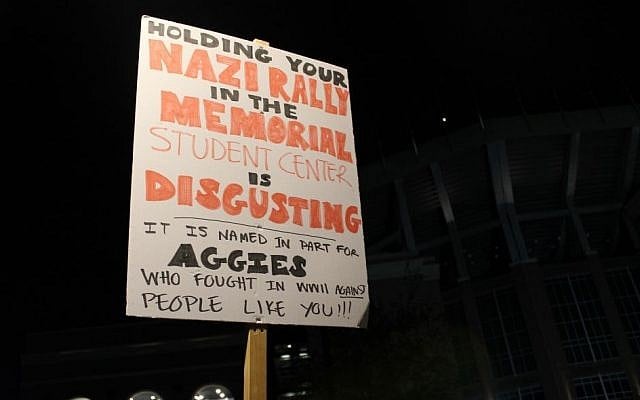 HOLDING YOUR
NAZI RALLY
IN THE
MEMORIAL
STUDENT CENTER
IS
DISGUSTING
IT IS NAMED IN PART FOR
AGGIES
WHO FOUGHT IN WWII AGAINST
PEOPLE LIKE YOU!!!